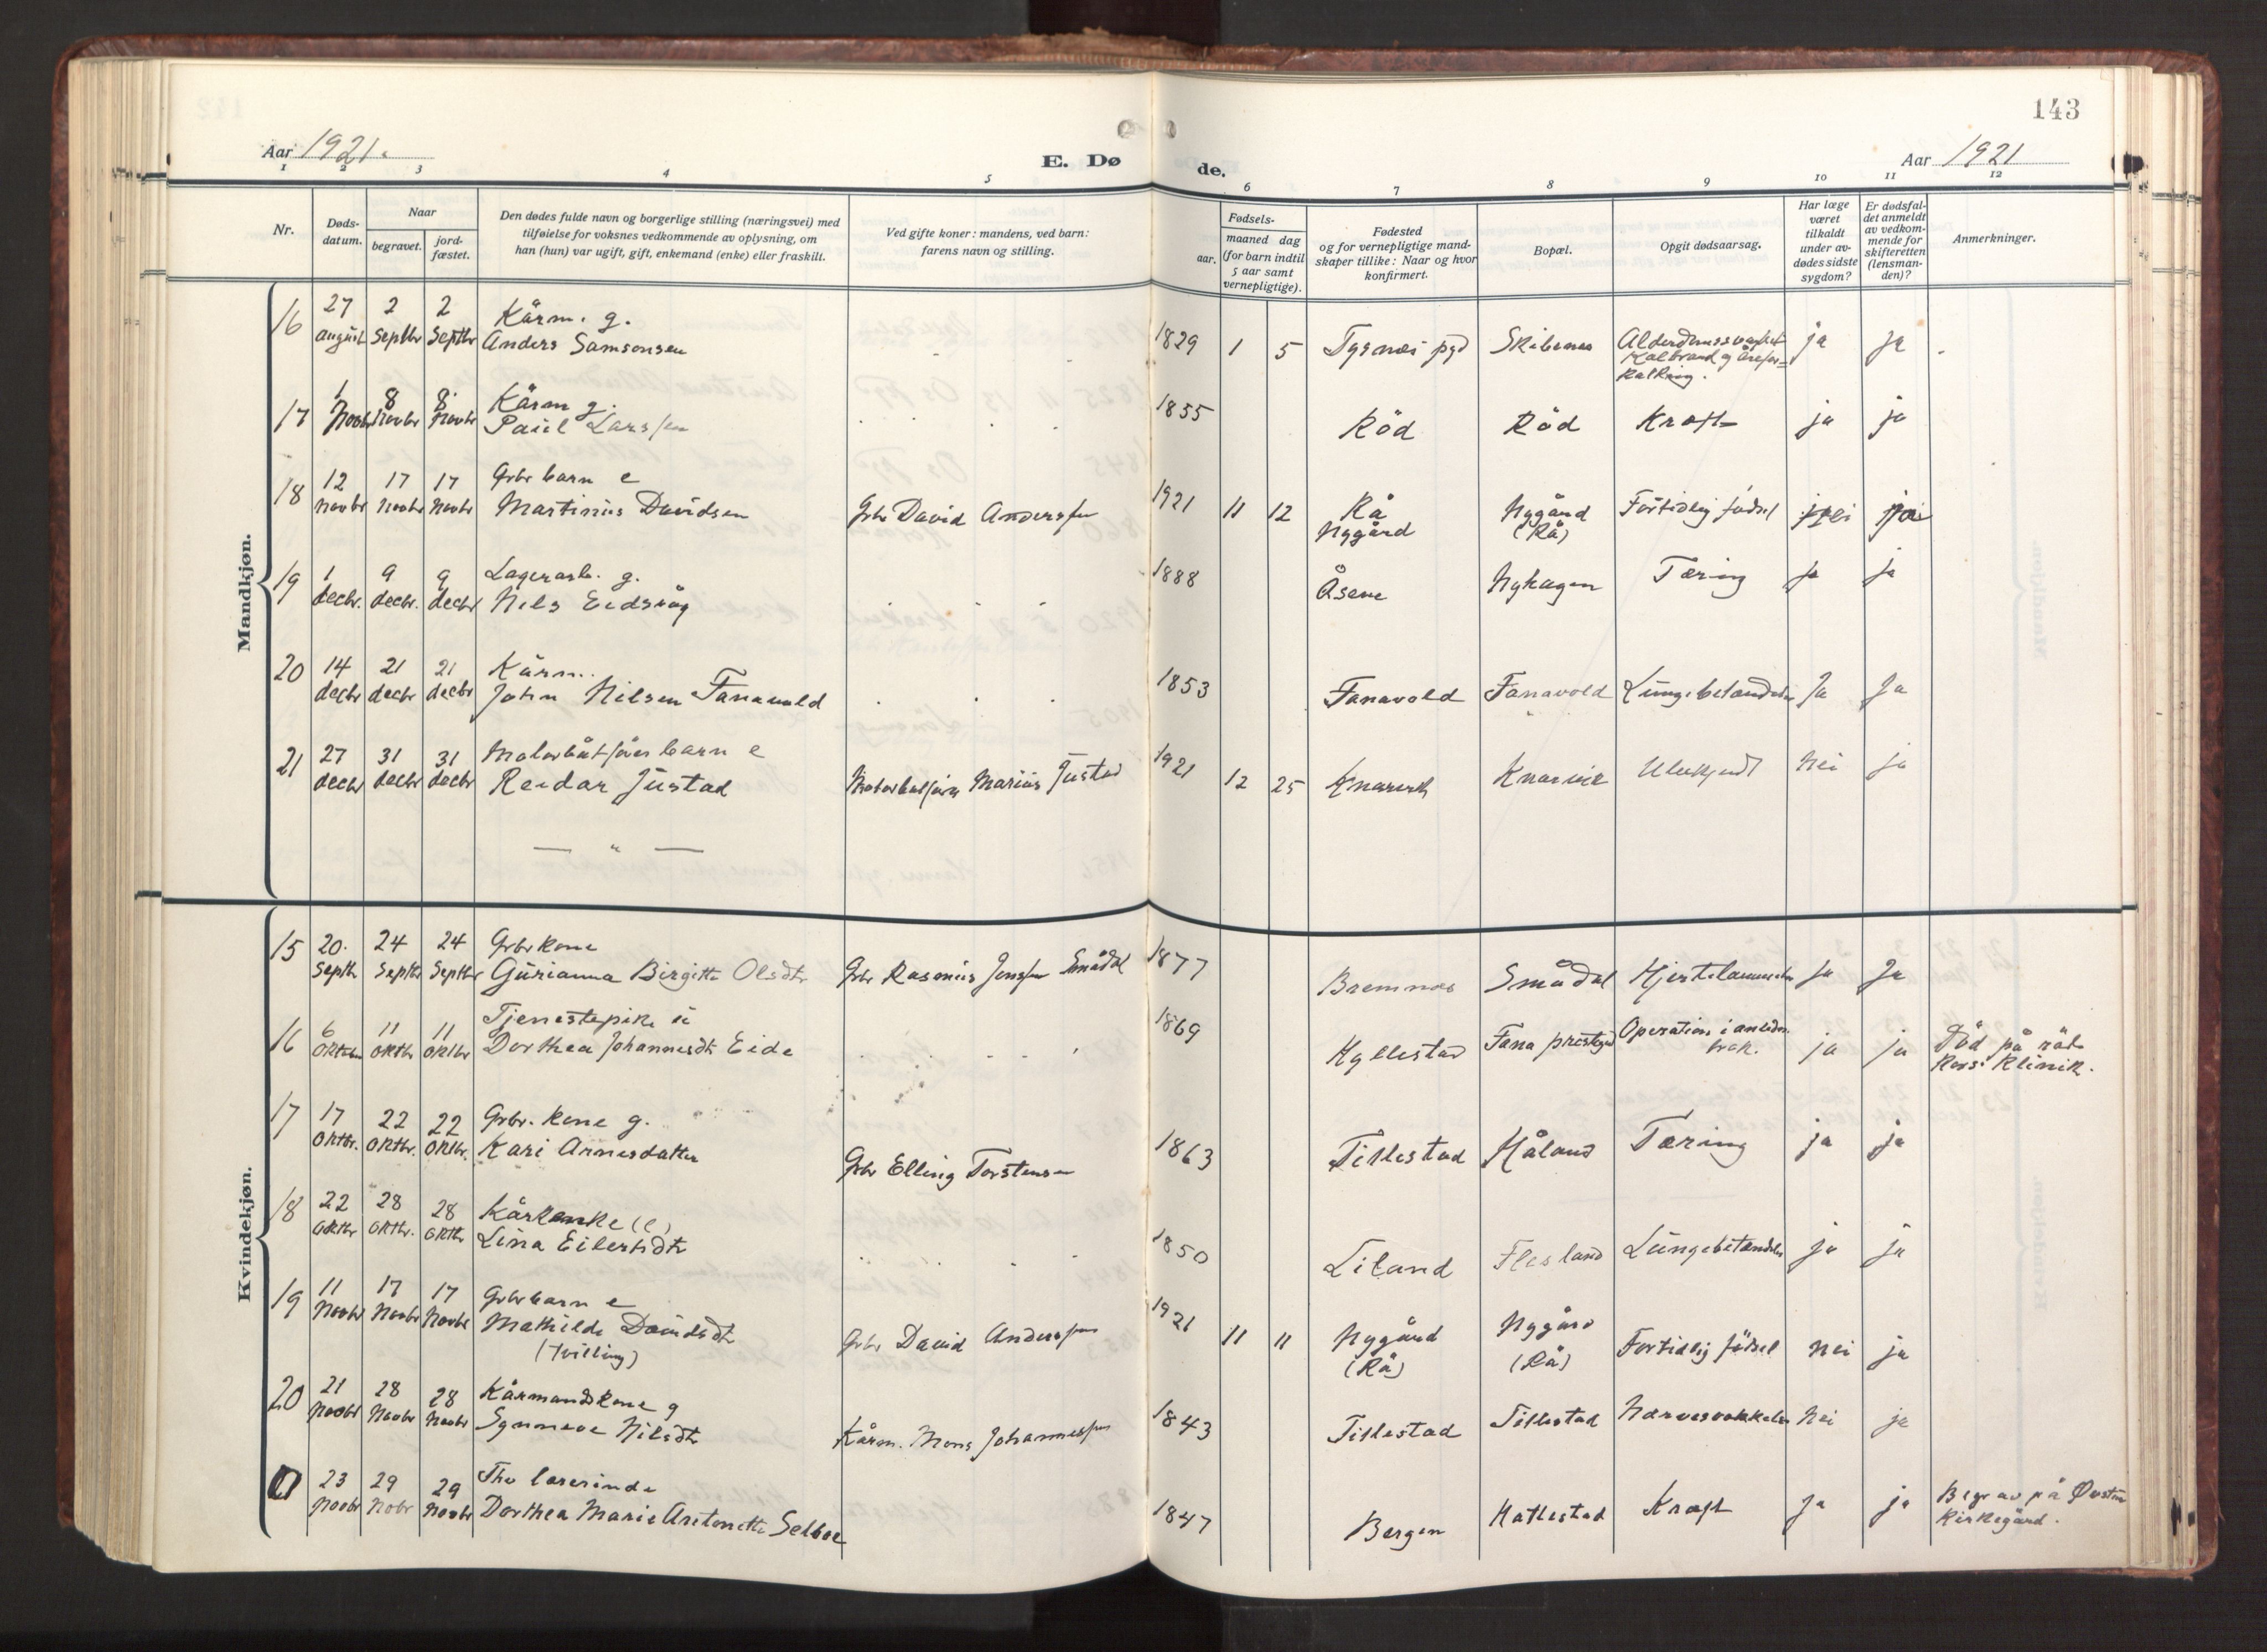 143
Aar 1921.
E. Dø
de.
Aar 1921
1 2 3 4 5 6 7 8 9 10 11 12
Nr.
Døds-
datum.
Naar
begravet.
jord-
fæstet.
Den dødes fulde navn og borgerlige stilling (næringsvei) med
tilføielse for voksnes vedkommende av oplysning, om
han (hun) var ugift, gift, enkemand (enke) eller fraskilt.
Ved gifte koner: mandens, ved barn:
farens navn og stilling.
Fødsels-
aar.
maaned dag
(for barn indtil
5 aar samt
vernepligtige).
Fødested
og for vernepligtige mand-
skaper tillike: Naar og hvor
konfirmert.
Bopæl.
Opgit dødsaarsag.
Har læge
været
tilkaldt
under av-
dødes sidste
sygdom?
Er dødsfal-
det anmeldt
av vedkom-
mende for
skifteretten
(lensman-
den)?
Anmerkninger.
Mandkjøn.
16 27 2 2 Kårm. g.
august Septbr Septbr Anders Samsonsen 1829 1 5 Tysnes pgd Skibenes Alderdomssvakhet
Kalbrand og årefor=
kalkning. ja ja
17 1 8 8. Kårm g.
Novbr Novbr Novbr Paul Larssen 1855 Röd Röd Kræft ja ja
18 12 17 17 Grbr barn e
Novbr Novbr Novbr Martinus Davidsen Grbr David Anderssen 1921 11 12 Rå
Nygård Nygård
(Rå) Förtidlig födsel nei ja
19 1 9 9 Lagerarb. g.
decbr. decbr. decbr Nils Eidsvåg 1888 Åsene Nyhagen Tæring ja ja
20 14 21 21 Kårm.
decbr decbr decbr John Nilsen Fanavold 1853 Fanavold Fanavold Lungebetændelse Ja Ja
21 27 31 31 Motorbåtförer barn e
decbr decbr decbr Reidar Justad Marius Justad 1921 12 25 Knarvik Knarvik Ubekjendt Nei ja
— " —
Kvindekjøn.
15 20. 24 24 Grbr kone
Septbr Septbr Septbr Gurianna Birgitte Olsdtr Grbr Rasmus Jenssen Smådal 1877 Bremnes Smådal Hjertelammelse Ja Ja
16 6 11 11 Tjenestepike u
Oktbr Oktbr Oktbr Dorthea Johannesdtr Eide 1869 Hyllestad Fana prestegd Operation i anledn.
brok. ja ja Död på röde
Kors' Klinik.
17 17 22 22 Grbr. kone g.
Oktbr. Oktbr. Oktbr. Kari Arnesdatter Grbr Elling Torstensen 1863 Titlestad Håland Tæring ja ja
18 22 28 28 Kårenke (e)
Oktbr Oktbr. Oktbr Lina Eilertsdtr 1850 Liland Flesland Lungebetændelse ja ja
19 11 17 17 Grbr barn e
Novbr Novbr Novbr Mathilde Davidsdtr
(tvilling) Grbr David Anderssen 1921 11 11 Nygård
(Rå) Nygård
(Rå) Fortidlig födsel Nei ja
20 21 28 28 Kårmandskone g
Novbr Novbr Novbr Synneve Nilsdtr Kårm. Mons Johannessen 1843 Titlestad Titlestad Nei ja
23 29 29 Fhv lærerinde
Novbr Nobr Novbr Dorthea Marie Antonette Selboe 1847 Bergen Hatlestad Kræft Ja ja Begravet på
Kirkegård.